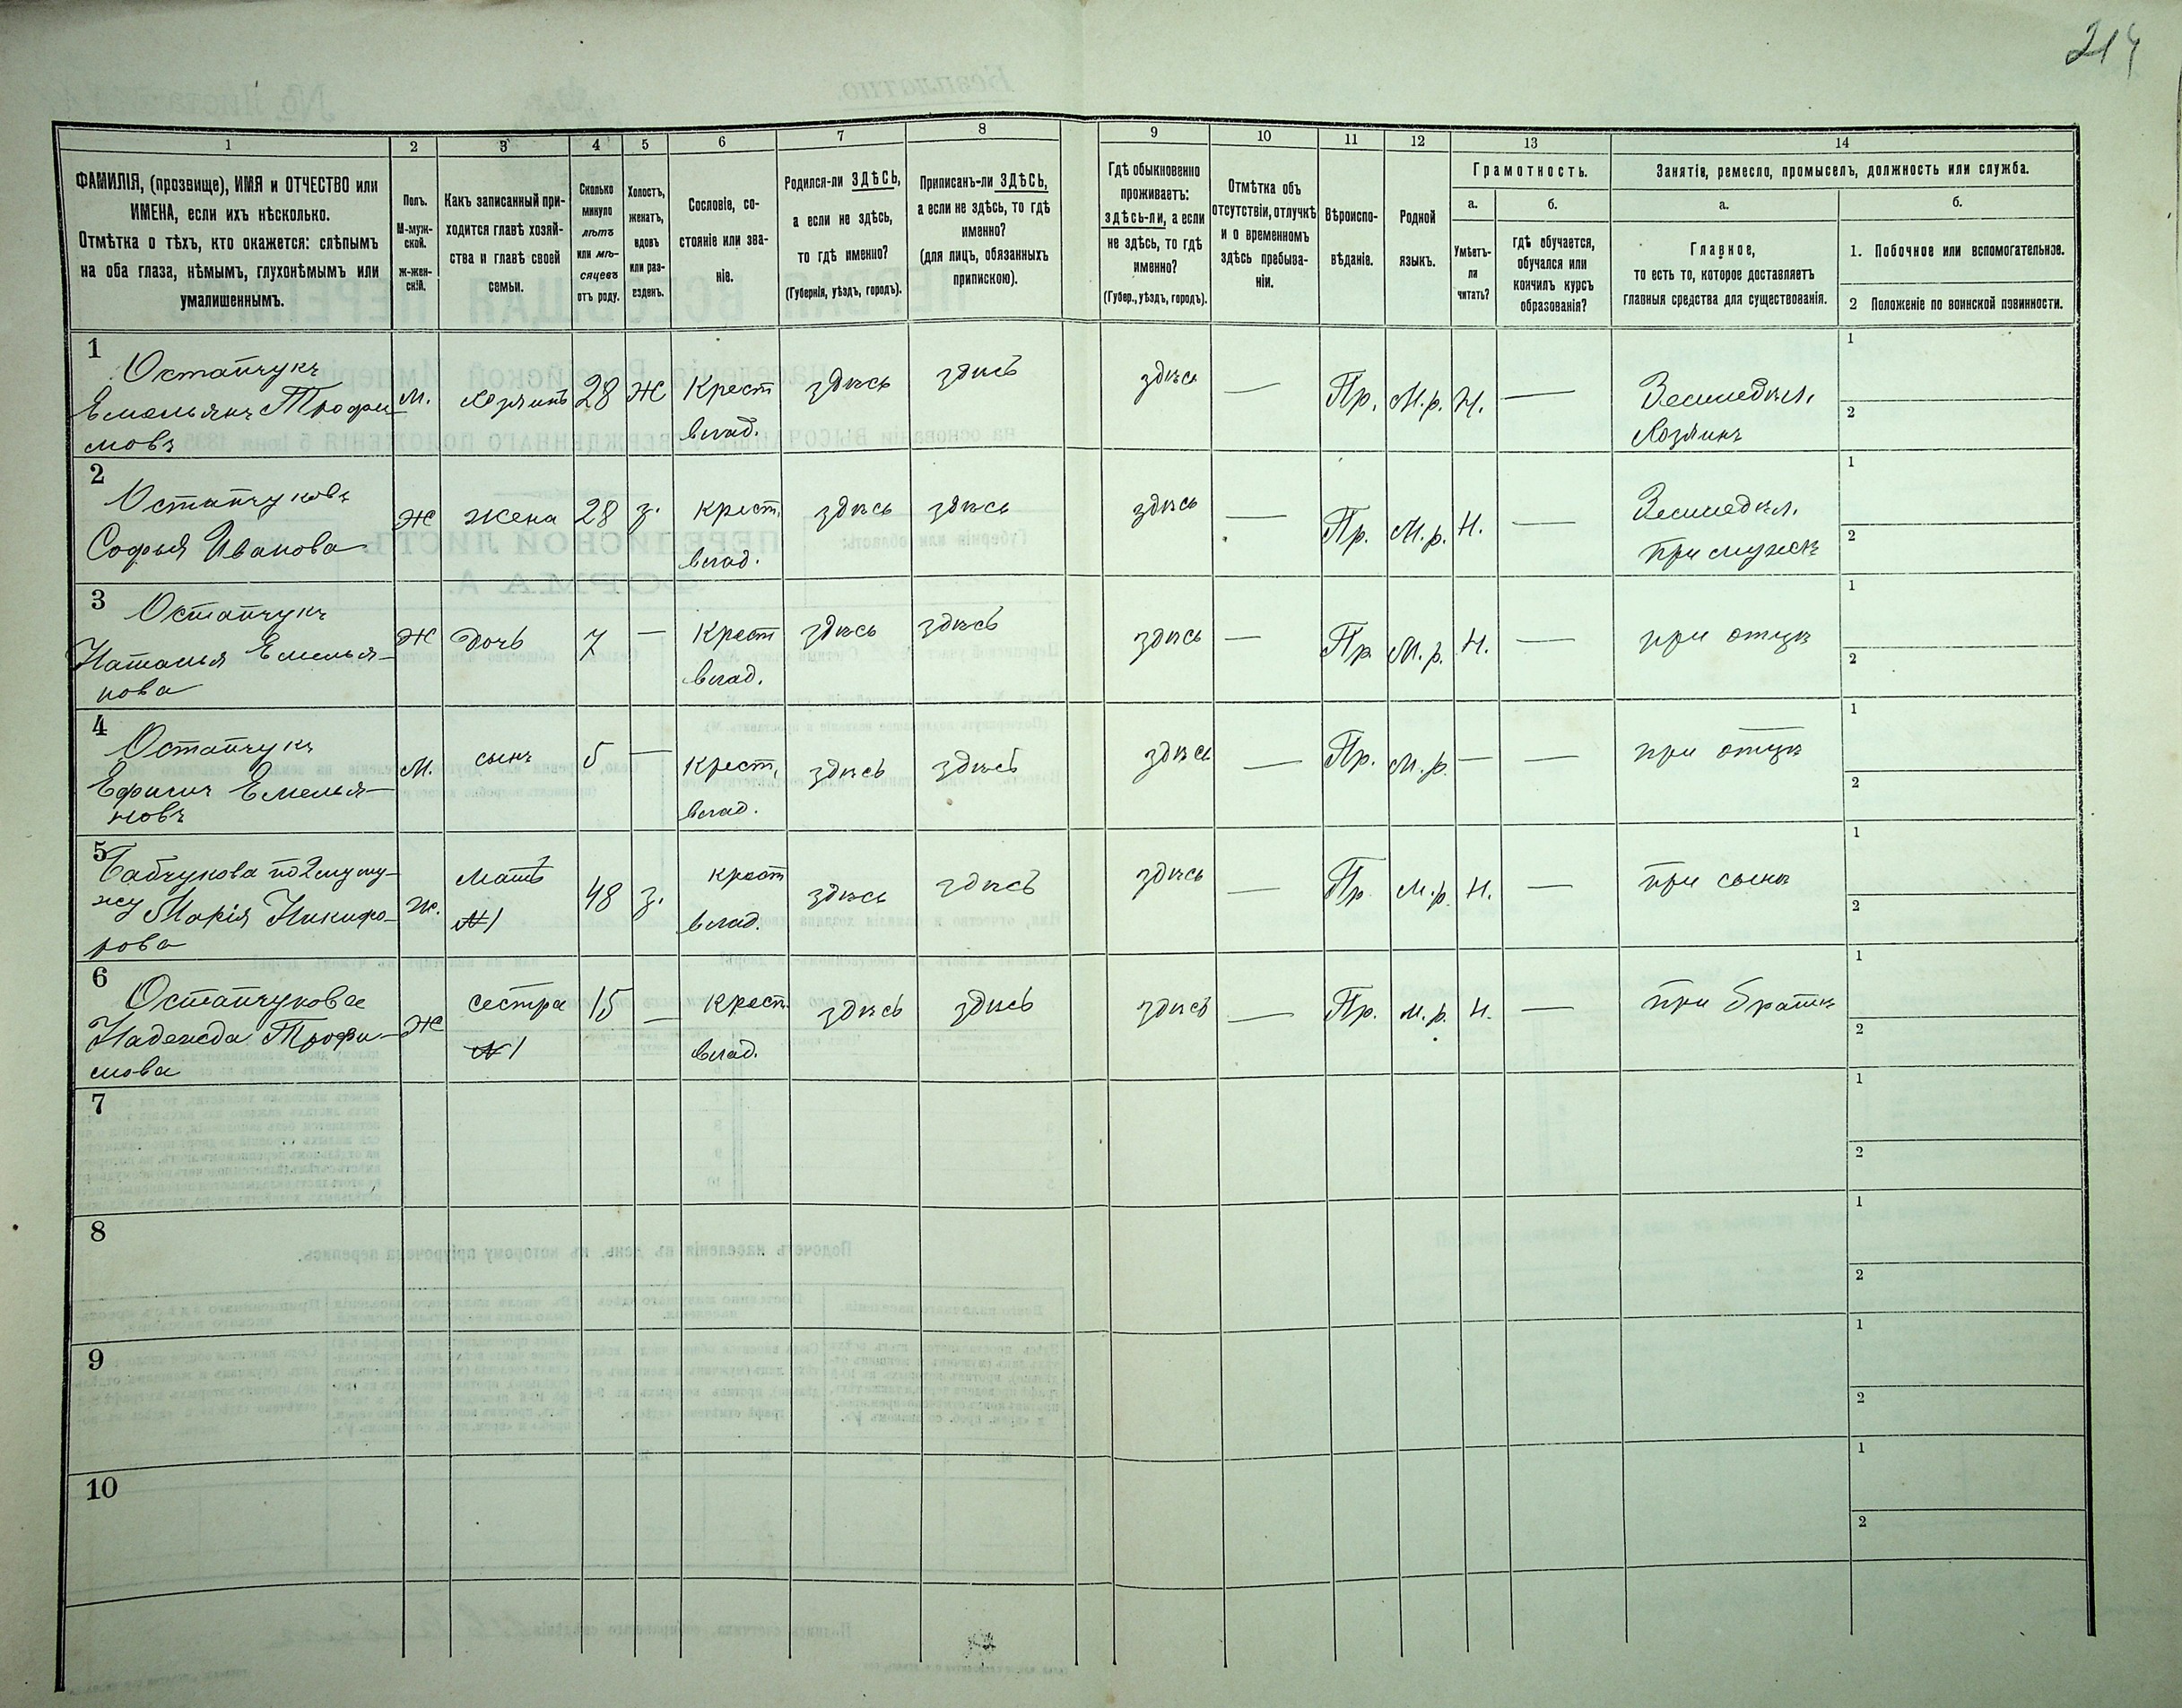 214
1 2 3 4 5 6 7 8 9 10 11 12 13 14
ФАМИЛІЯ, (прозвище), ИМЯ и ОТЧЕСТВО или
ИМЕНА, если ихъ нѣсколько.
Отмѣтка о тѣхъ, кто окажется: слѣпымъ
на оба глаза, нѣмымъ, глухонѣмымъ или
умалишеннымъ.
Полъ.
М-муж-
ской.
ж-жен-
скій.
Какъ записанный при-
ходится главѣ хозяй-
ства и главѣ своей
семьи.
Сколько
минуло
лѣтъ
или мѣ-
сяцевъ
отъ роду.
Холостъ,
женатъ,
вдовъ
или раз-
веденъ.
Сословіе, со-
стояніе или зва-
ніе.
Родился-ли ЗДѢСЬ,
а если не здѣсь,
то гдѣ именно?
(Губернія, уѣздъ, городъ).
Приписанъ-ли ЗДѢСЬ,
а если не здѣсь, то гдѣ
именно?
(для лицъ, обязанныхъ
припискою).
Гдѣ обыкновенно
проживаетъ:
здѣсь-ли, а если
не здѣсь, то гдѣ
именно?
(Губер., уѣздъ, городъ).
Отмѣтка объ
отсутствіи, отлучкѣ
и о временномъ
здѣсь пребыва-
ніи.
Вѣроиспо-
вѣданіе.
Родной
языкъ.
Грамотность.
а.
Умѣетъ-
ли
читать?
б.
гдѣ обучается,
обучался или
кончилъ курсъ
образованія?
Занятіе, ремесло, промыселъ, должность или служба.
а.
Главное,
то есть то, которое доставляетъ
главныя средства для существованія.
б.
1. Побочное или вспомогательное.
2 Положеніе по воинской повинности.
1
Остапчукъ
Емельянъ Трофи-
мовъ
М. хозяинъ 28 Ж Крест
влад.
здѣсь здѣсь здѣсь — Пр. М.р. Н. — Земледѣл.
Хозяинъ
1
2
2
Остапчуковъ
Софья Иванова
Ж жена 28 з. крест.
влад.
здѣсь здѣсь здѣсь — Пр. М.р. Н. — Земледѣл.
при мужѣ
1
2
3
Остапчукъ
Наталья Емелья-
нова
Ж дочь 7 — Крест
влад.
здѣсь здѣсь здѣсь — Пр. М.р. Н. — при отцѣ
1
2
4
Остапчукъ
Ефимъ Емелья-
новъ
М. сынъ 5 — Крест.
влад.
здѣсь здѣсь здѣсь — Пр. М.р. — — при отцѣ
1
2
5
Бабчукова по 2му му-
жу Марія Никифо-
рова
Ж. мать
№1
48 з. крест
влад.
здѣсь здѣсь здѣсь — Пр. М.р. Н. — при сынѣ
1
2
6
Остапчукова
Надежда Трофи-
мова
Ж сестра
№1
15 — крест.
влад.
здѣсь здѣсь здѣсь — Пр. М.р. Н. — при братѣ
1
2
7
1
2
8
1
2
9
1
2
10
1
2